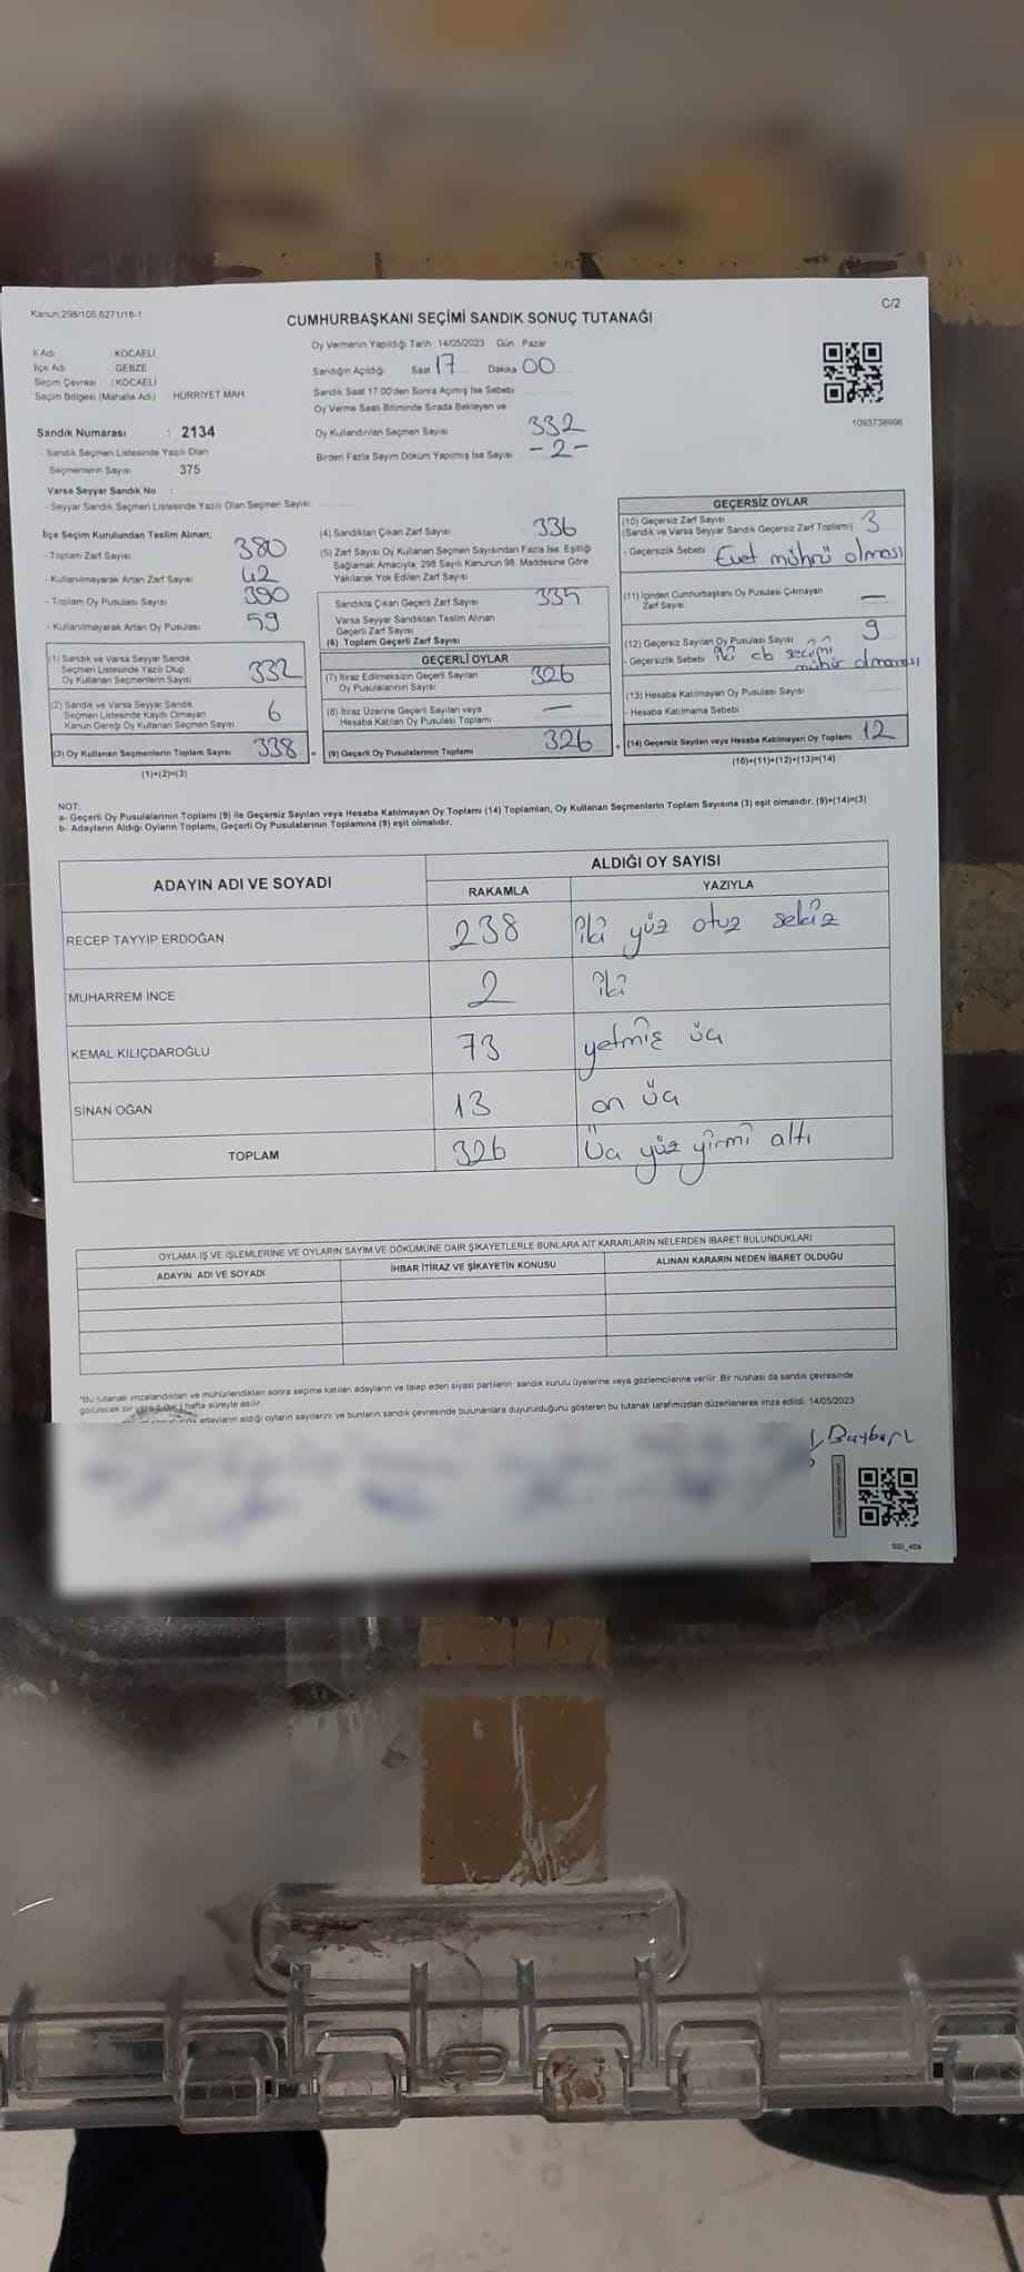 Kanun:298/105.6271/16-1
C/2
CUMHURBAŞKANI SEÇİMİ SANDIK SONUÇ TUTANAĞI
Oy Vermenin Yapıldığı Tarih: 14/05/2023 Gün: Pazar
İl Adı : KOCAELİ
İlçe Adı : GEBZE
Seçim Çevresi : KOCAELİ
Seçim Bölgesi (Mahalle Adı) : HÜRRİYET MAH.
Sandığın Açıldığı Saat 17 Dakika 00
Sandık Saat 17:00'den Sonra Açılmış İse Sebebi
Oy Verme Saati Bitiminde Sırada Bekleyen ve
Oy Kullandırılan Seçmen Sayısı 332
Birden Fazla Sayım Döküm Yapılmış İse Sayısı -2-
1093738996
Sandık Numarası : 2134
Sandık Seçmen Listesinde Yazılı Olan
Seçmenlerin Sayısı 375
Varsa Seyyar Sandık No :
- Seyyar Sandık Seçmen Listesinde Yazılı Olan Seçmen Sayısı
İlçe Seçim Kurulundan Teslim Alınan;
- Toplam Zarf Sayısı 380
- Kullanılmayarak Artan Zarf Sayısı 42
- Toplam Oy Pusulası Sayısı 390
- Kullanılmayarak Artan Oy Pusulası 59
(1) Sandık ve Varsa Seyyar Sandık
Seçmen Listesinde Yazılı Olup
Oy Kullanan Seçmenlerin Sayısı 332
(2) Sandık ve Varsa Seyyar Sandık
Seçmen Listesinde Kayıtlı Olmayan
Kanun Gereği Oy Kullanan Seçmen Sayısı 6
(3) Oy Kullanan Seçmenlerin Toplam Sayısı 338
(1)+(2)=(3)
(4) Sandıktan Çıkan Zarf Sayısı 336
(5) Zarf Sayısı Oy Kullanan Seçmen Sayısından Fazla İse, Eşitliği
Sağlamak Amacıyla, 298 Sayılı Kanunun 98. Maddesine Göre
Yakılarak Yok Edilen Zarf Sayısı
Sandıkta Çıkan Geçerli Zarf Sayısı 335
Varsa Seyyar Sandıktan Teslim Alınan
Geçerli Zarf Sayısı
(6) Toplam Geçerli Zarf Sayısı
GEÇERLİ OYLAR
(7) İtiraz Edilmeksizin Geçerli Sayılan
Oy Pusulalarının Sayısı 326
(8) İtiraz Üzerine Geçerli Sayılan veya
Hesaba Katılan Oy Pusulası Toplamı —
= (9) Geçerli Oy Pusulalarının Toplamı 326
GEÇERSİZ OYLAR
(10) Geçersiz Zarf Sayısı
(Sandık ve Varsa Seyyar Sandık Geçersiz Zarf Toplamı) 3
- Geçersizlik Sebebi Evet mührü olması
(11) İçinden Cumhurbaşkanı Oy Pusulası Çıkmayan
Zarf Sayısı —
(12) Geçersiz Sayılan Oy Pusulası Sayısı 9
- Geçersizlik Sebebi iki cb seçimi
mühür olmaması
(13) Hesaba Katılmayan Oy Pusulası Sayısı
- Hesaba Katılmama Sebebi
+ (14) Geçersiz Sayılan veya Hesaba Katılmayan Oy Toplamı 12
(10)+(11)+(12)+(13)=(14)
NOT:
a- Geçerli Oy Pusulalarının Toplamı (9) ile Geçersiz Sayılan veya Hesaba Katılmayan Oy Toplamı (14) Toplamları, Oy Kullanan Seçmenlerin Toplam Sayısına (3) eşit olmalıdır. (9)+(14)=(3)
b- Adayların Aldığı Oyların Toplamı, Geçerli Oy Pusulalarının Toplamına (9) eşit olmalıdır.
ADAYIN ADI VE SOYADI
ALDIĞI OY SAYISI
RAKAMLA YAZIYLA
RECEP TAYYİP ERDOĞAN 238 iki yüz otuz sekiz
MUHARREM İNCE 2 iki
KEMAL KILIÇDAROĞLU 73 yetmiş üç
SİNAN OĞAN 13 on üç
TOPLAM 326 Üç yüz yirmi altı
OYLAMA İŞ VE İŞLEMLERİNE VE OYLARIN SAYIM VE DÖKÜMÜNE DAİR ŞİKAYETLERLE BUNLARA AİT KARARLARIN NELERDEN İBARET BULUNDUKLARI
ADAYIN ADI VE SOYADI İHBAR İTİRAZ VE ŞİKAYETİN KONUSU ALINAN KARARIN NEDEN İBARET OLDUĞU
*Bu tutanak imzalandıktan ve mühürlendikten sonra seçime katılan adayların ve talep eden siyasi partilerin sandık kurulu üyelerine veya gözlemcilerine verilir. Bir nüshası da sandık çevresinde
görülecek bir hafta süreyle asılır.
adayların aldığı oyların sayılarını ve bunların sandık çevresinde bulunanlara duyurulduğunu gösteren bu tutanak tarafımızdan düzenlenerek imza edildi. 14/05/2023